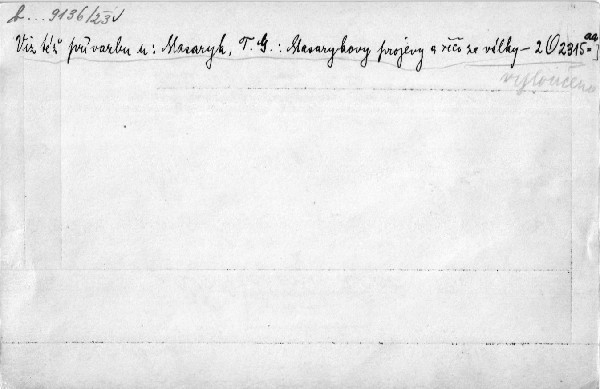 b... 9136/23
Viz též přívazbu u: Masaryk, T. G.: Masarykovy projevy a řeči ze války - 2 O 2315
vyloučeno